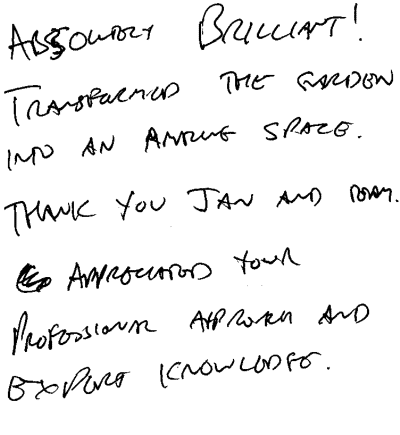 ABSOLUTELY BRILLIANT!
TRANSFORMED THE GARDEN
INTO AN AMAZING SPACE.
THANK YOU JAN AND
APPRECIATED YOUR
PROFESSIONAL APPROACH AND
EXPERT KNOWLEDGE.